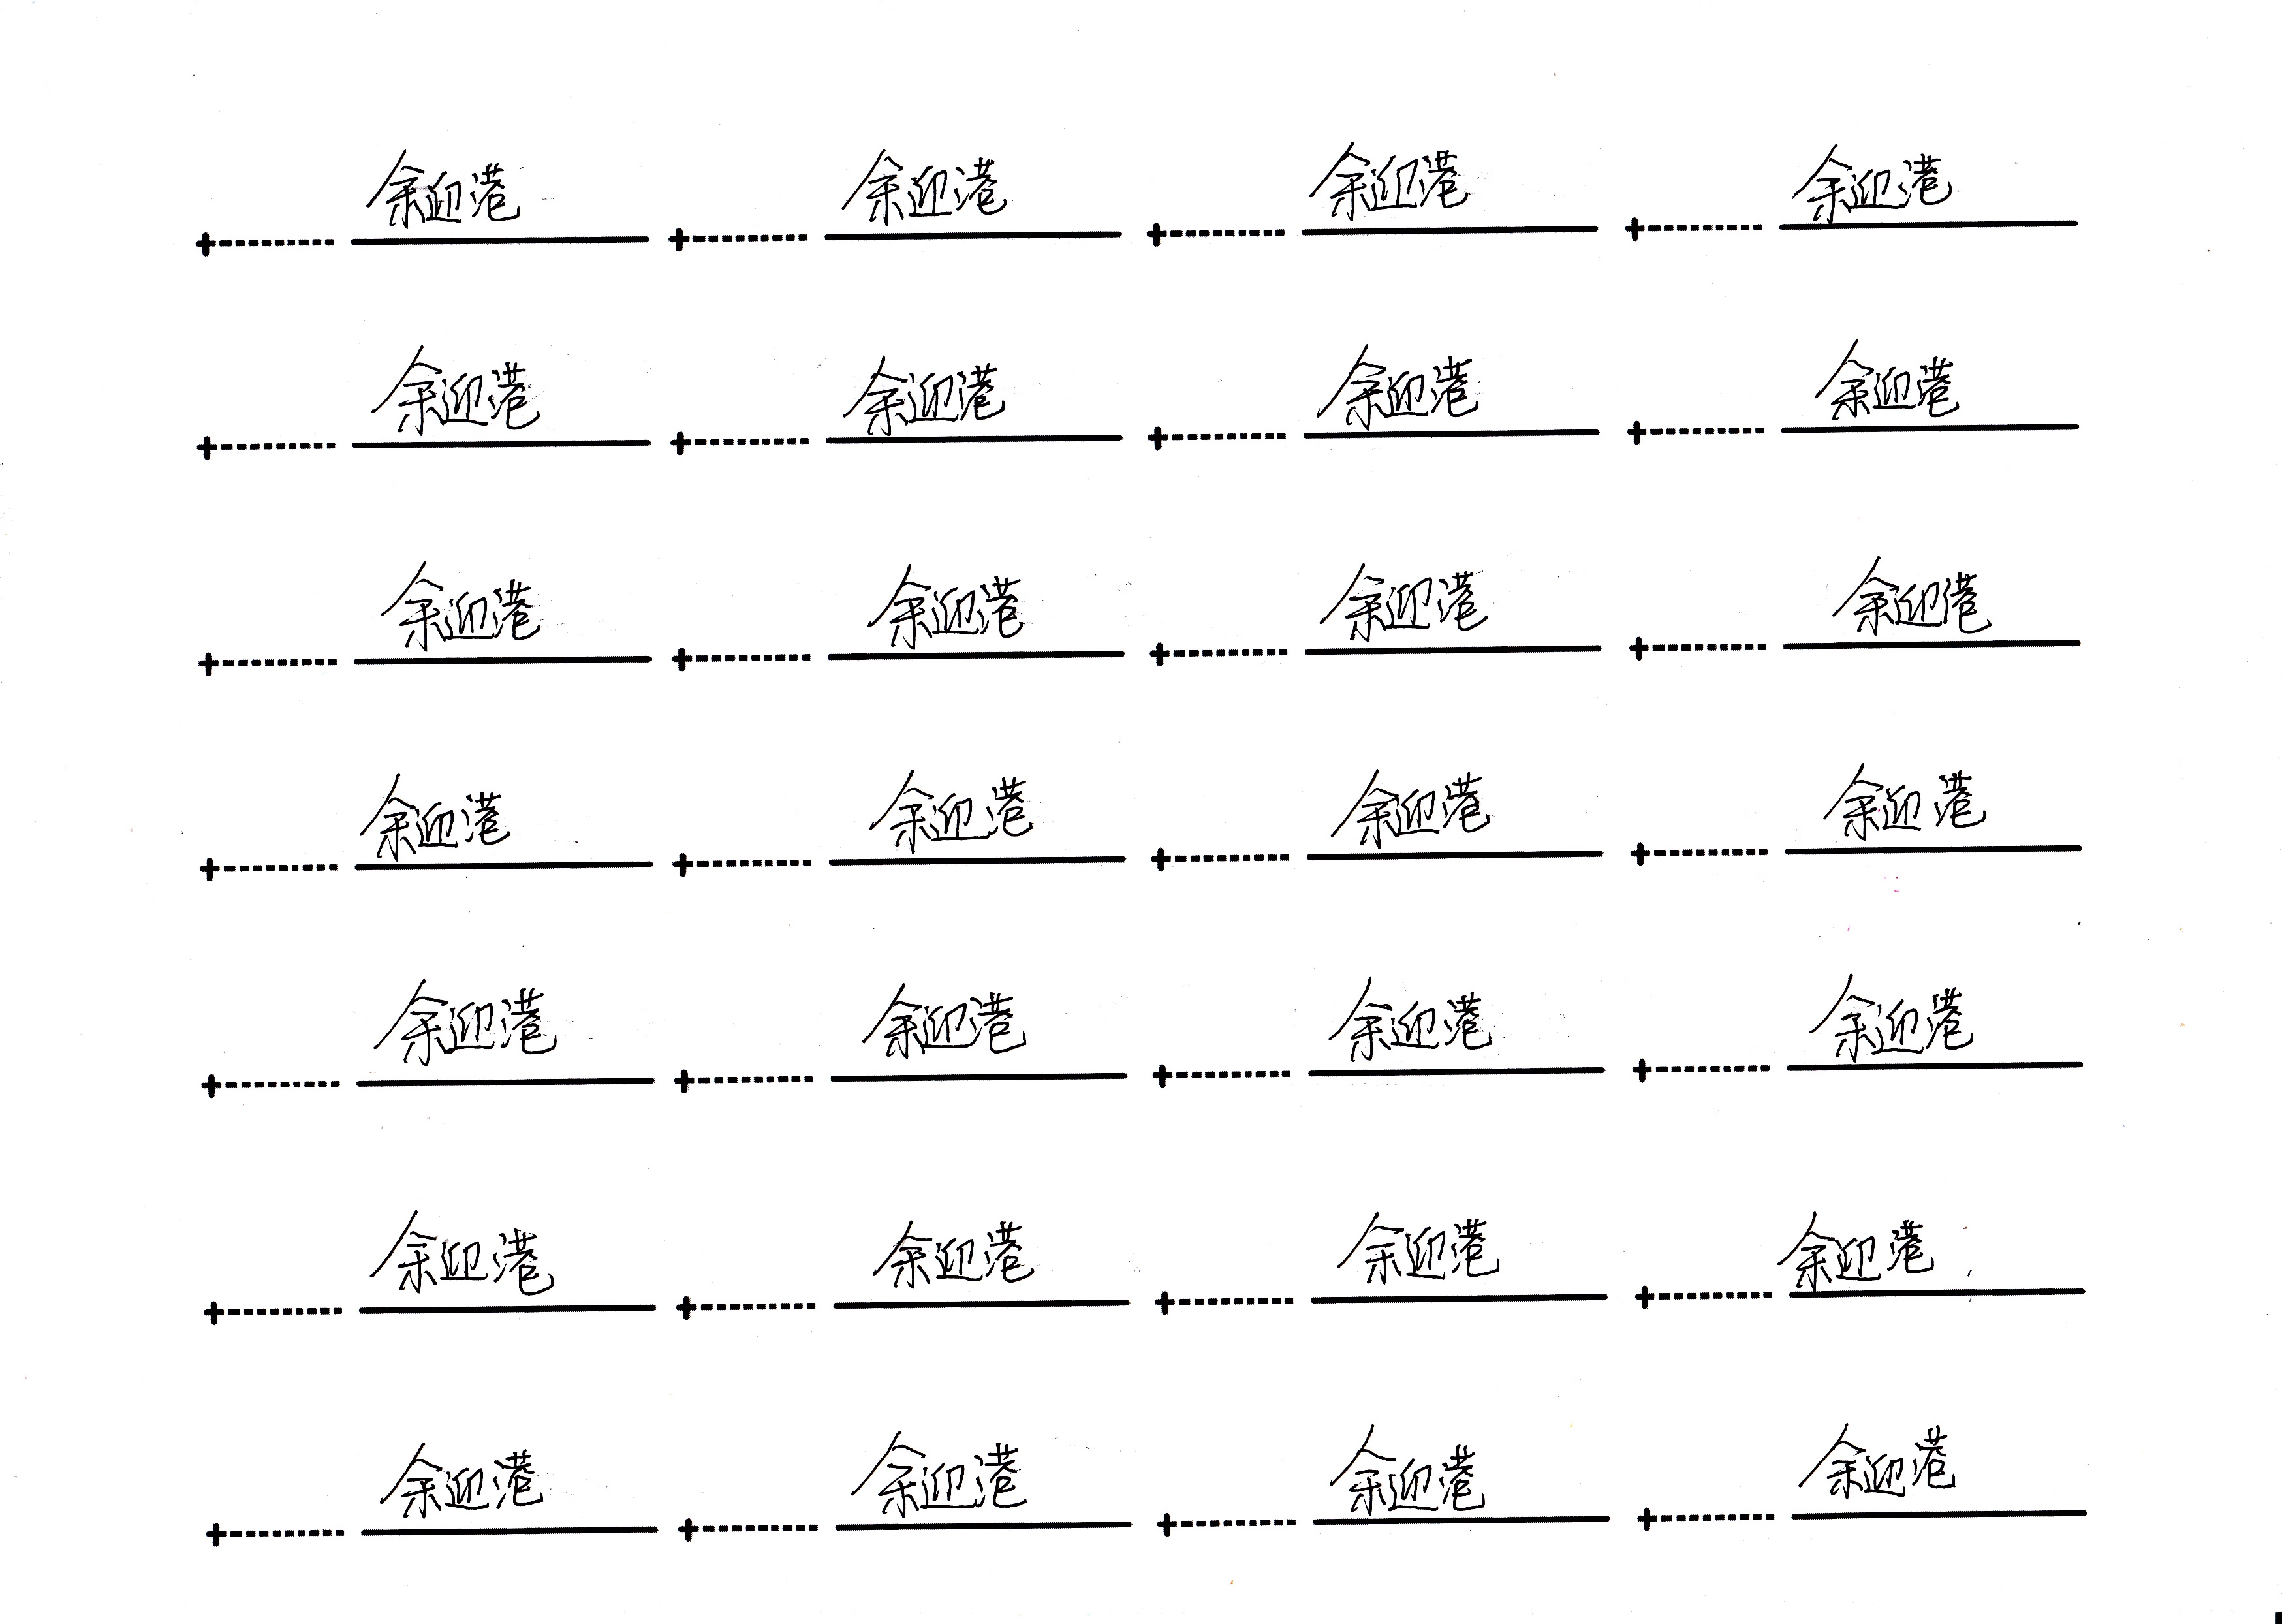 余迎港 余迎港 余迎港 余迎港
余迎港 余迎港 余迎港 余迎港
余迎港 余迎港 余迎港 余迎港
余迎港 余迎港 余迎港 余迎港
余迎港 余迎港 余迎港 余迎港
余迎港 余迎港 余迎港 余迎港
余迎港 余迎港 余迎港 余迎港